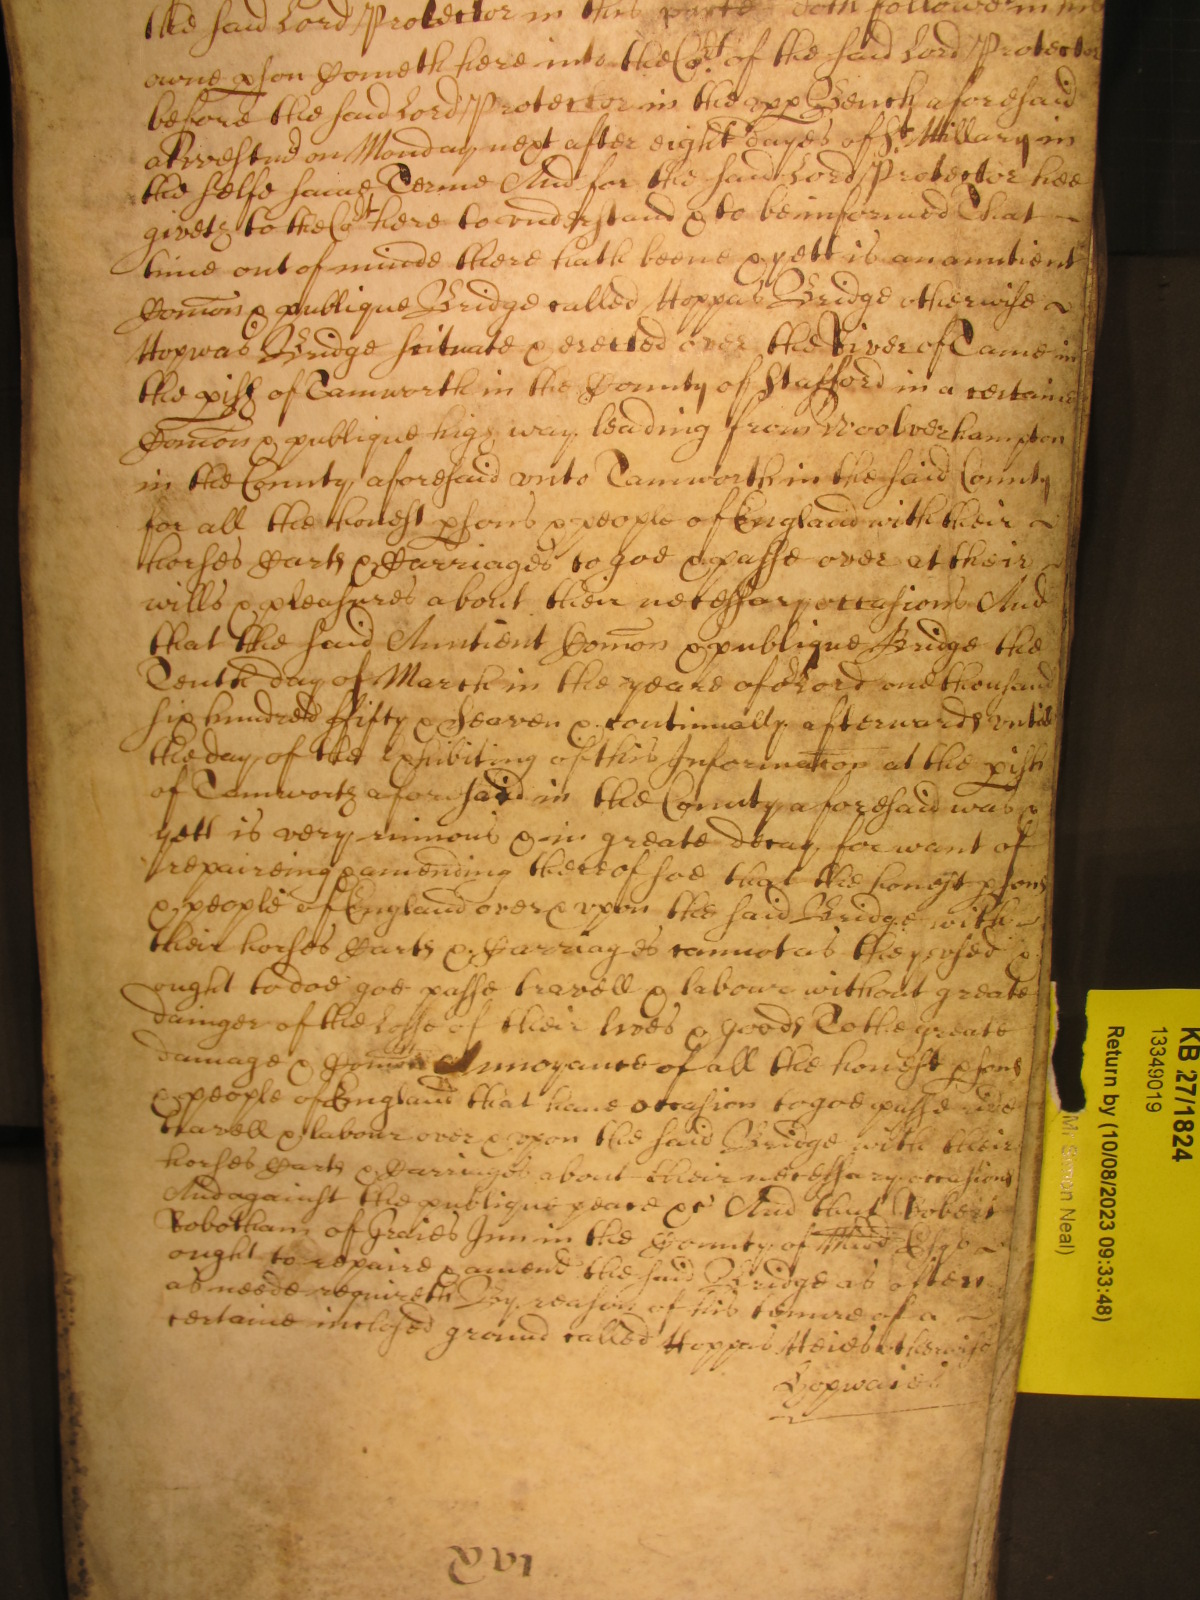 the said Lord Protector in this parte doth followe in his
owne pson Cometh here into the Cot. of the said Lord Protector
before the said Lord Protector in the vpp Bench aforesaid
att Westmr on Monday next after eight dayes of St. Hillary in
the selfe same Terme And for the said Lord Protector hee
giveth to the Cot here to vnderstand & to be informed That
time out of minde there hath beene & yett is an anntient
Comon & publique Bridge called Hoppas Bridge otherwise
Hopwas Bridge scituate & erected over the River of Tame in
the pish of Tamworth in the County of Stafford in a certaine
Comon & publique high way leading from Woolverhampton
in the County aforesaid vnto Tamworth in the said County
for all the honest psons & people of England with their
horses Carts & Carriages to goe & passe over at their
wills & pleasures about their necessary occasions And
that the said Anntient Comon & publique Bridge the
Tenth day of March in the yeare of or Lord one thousand
six hundred ffifty & seaven & continually afterwards vntill
the day of the exhibiting of this Information at the pish
of Tamworth aforesaid in the County aforesaid was &
yett is very ruinous & in greate decay for want of
repaireing & amending thereof soe that the honest psons
& people of England over & vpon the said Bridge with
their horses Carts & Carriages cannot as they vsed &
ought to doe goe passe travell & labour without greate
dainger of the Losse of their lives & goods To the greate
damage & Comon Annoyance of all the honest psons
& people of England that haue occasion to goe passe ride
travell & labour over & vpon the said Bridge with their
horses Carts & Carriages about their necessary occasions
And against the publique peace &c And that Robert
Robotham of Graies Inn in the County of Midd Esqr
ought to repaire & amend the said Bridge as often
as neede requireth By reason of his tenure of a
certaine inclosed ground called Hoppas Heies otherwise
Hopwaies
KB 27/1824
13349019
Return by (10/08/2023 09:33:48)
Mr Simon Neal)